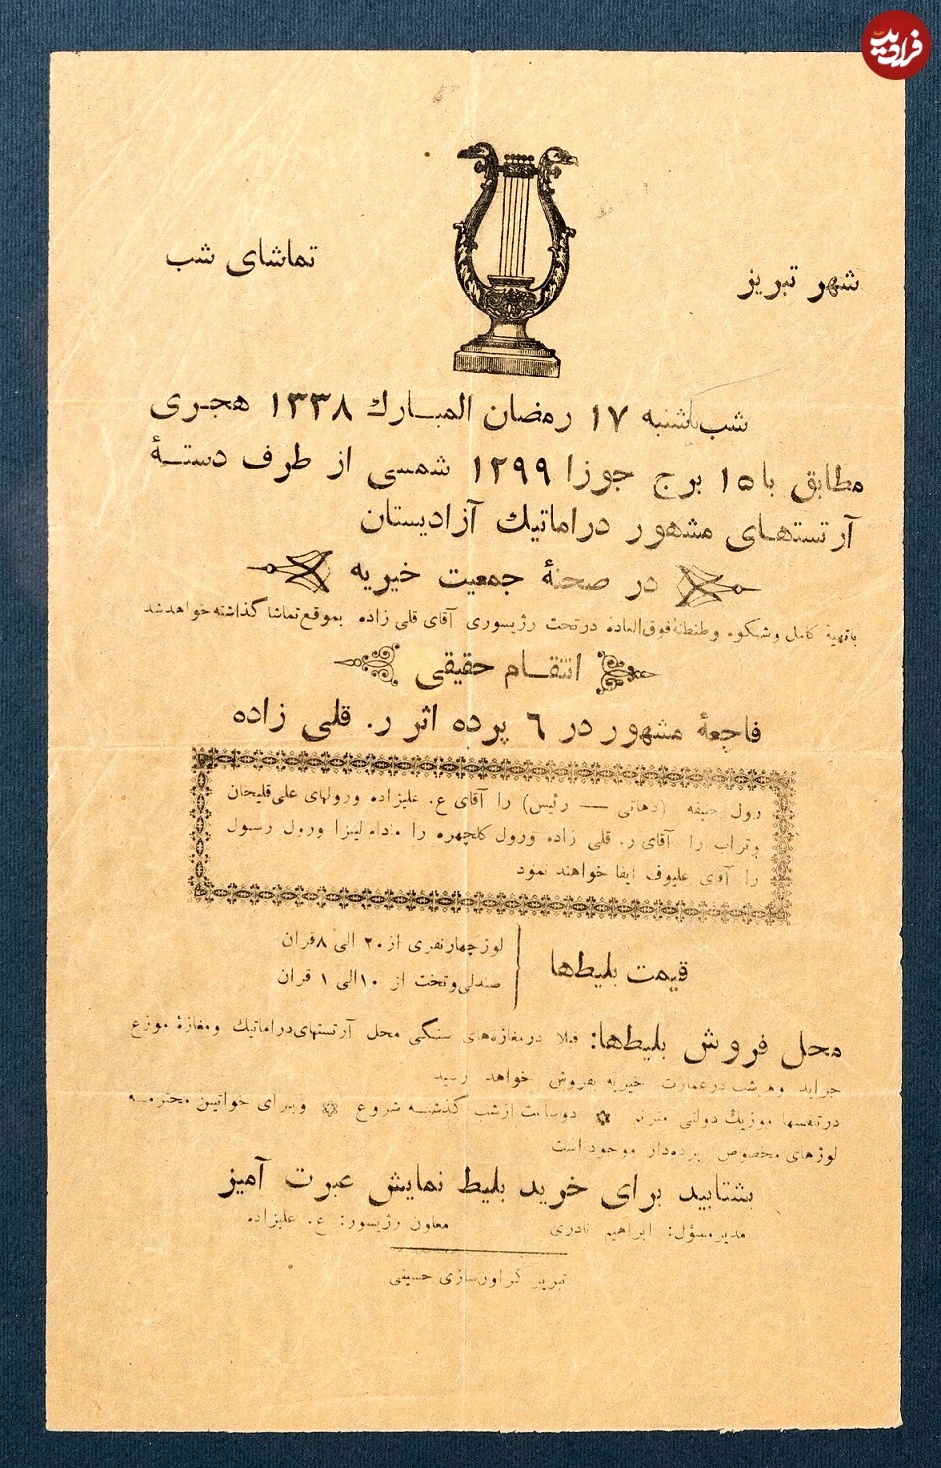 فرادید
شهر تبریز
تماشای شب
شب یکشنبه ۱۷ رمضان المبارك ۱۳۳۸ هجری
مطابق با ۱۵ برج جوزا ۱۲۹۹ شمسی از طرف دستهٔ
آرتستهای مشهور دراماتيك آزادیستان
در صحنهٔ جمعیت خیریه
باتهیهٔ کامل وشکوه وطنطنهٔ فوق‌العاده درتحت رژیسوری آقای قلی زاده بموقع تماشا گذاشته خواهدشد
انتقام حقیقی
فاجعهٔ مشهور در ۶ پرده اثر ر. قلی زاده
رول حنیفه (دهاتی — رئیس) را آقای ع. علیزاده ورولهای علی‌قلیخان
وتراب را آقای ر. قلی زاده ورول گلچهره را مادام لیزا ورول رسول
را آقای علیوف ایفا خواهند نمود
قیمت بلیط‌ها
لوژچهارنفری از ۲۰ الی ۸ قران
صندلی‌وتخت از ۱۰ الی ۱ قران
محل فروش بلیط‌ها: قبلا درمغازه‌های سنگی محل آرتستهای‌دراماتيك ومغازهٔ موزع
جراید وهرشب درعمارت خیریه بفروش خواهد رسید
درتنفسها موزيك دولتی مترنم دوساعت ازشب گذشته شروع وبرای خواتین محترمه
لوژهای مخصوص پرده‌دار موجود است
بشتابید برای خرید بلیط نمایش عبرت آمیز
مدیرمسؤل: ابراهیم نادری
معاون رژیسور: ع. علیزاده
تبریز گراورسازی حسینی